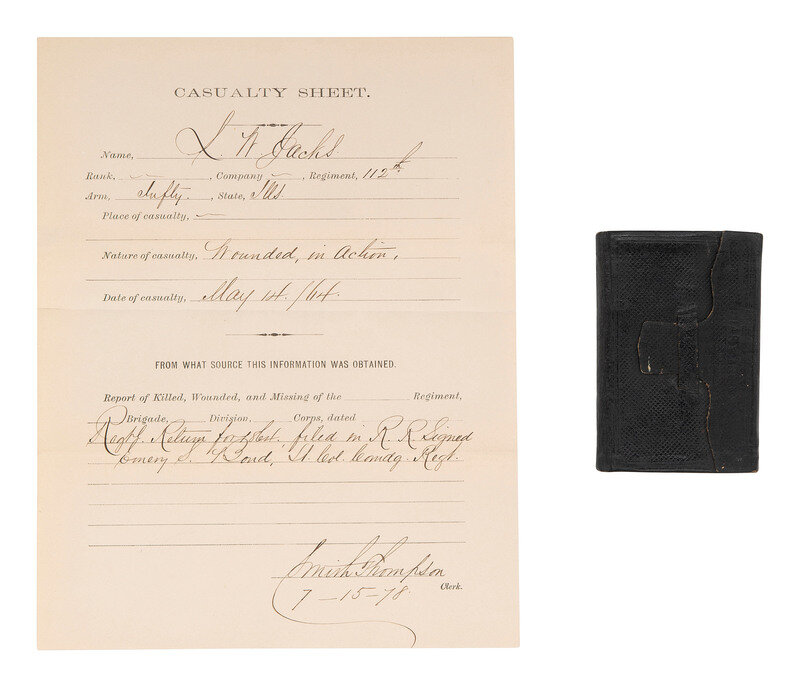 CASUALTY SHEET.
Name, L. W. Jacks.
Rank, , Company , Regiment, 112th.
Arm, Infty. , State, Ills.
Place of casualty,
Nature of casualty, Wounded, in Action,
Date of casualty, May 14. /64.
FROM WHAT SOURCE THIS INFORMATION WAS OBTAINED.
Report of Killed, Wounded, and Missing of the Regiment,
Brigade, Division, Corps, dated
Return filed in R. R. Signed
Emery S. Bond, Lt. Col. Comdg. Regt.
Smith Thompson
Clerk.
7-15-78.